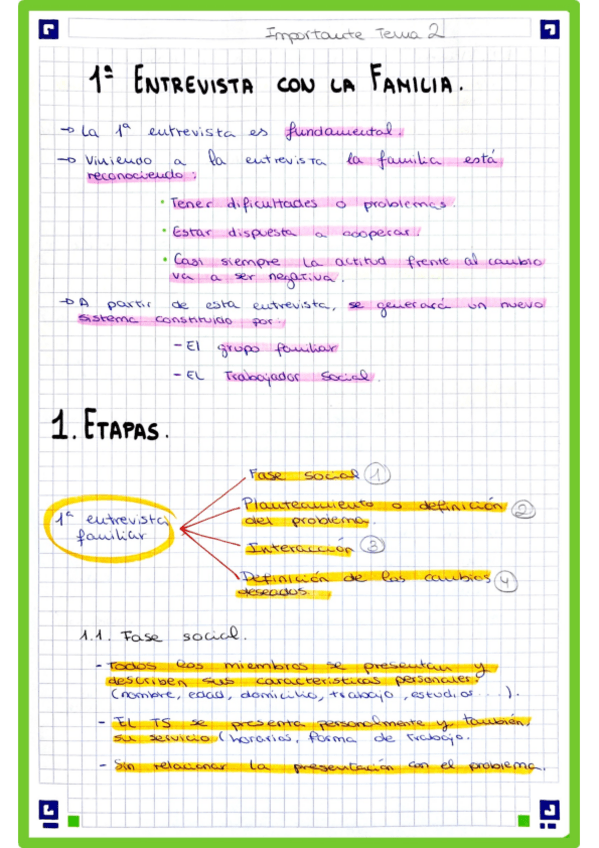 Importante Tema 2
1ª ENTREVISTA CON LA FAMILIA.
→ La 1ª entrevista es fundamental.
→ Viniendo a la entrevista la familia está
reconociendo:
• Tener dificultades o problemas.
• Estar dispuesta a cooperar.
• Casi siempre la actitud frente al cambio
va a ser negativa.
→ A partir de esta entrevista, se generará un nuevo
sistema constituido por:
- El grupo familiar
- EL Trabajador Social.
1. ETAPAS.
1ª entrevista
familiar
Fase social 1
Planteamiento o definición
del problema. 2
Interacción 3
Definición de los cambios
deseados 4
1.1. Fase social.
- Todos los miembros se presentan y
describen sus características personales
(nombre, edad, domicilio, trabajo, estudios...).
- EL TS se presenta personalmente y, también,
su servicio (horarios, forma de trabajo.
- Sin relacionar la presentación con el problema.